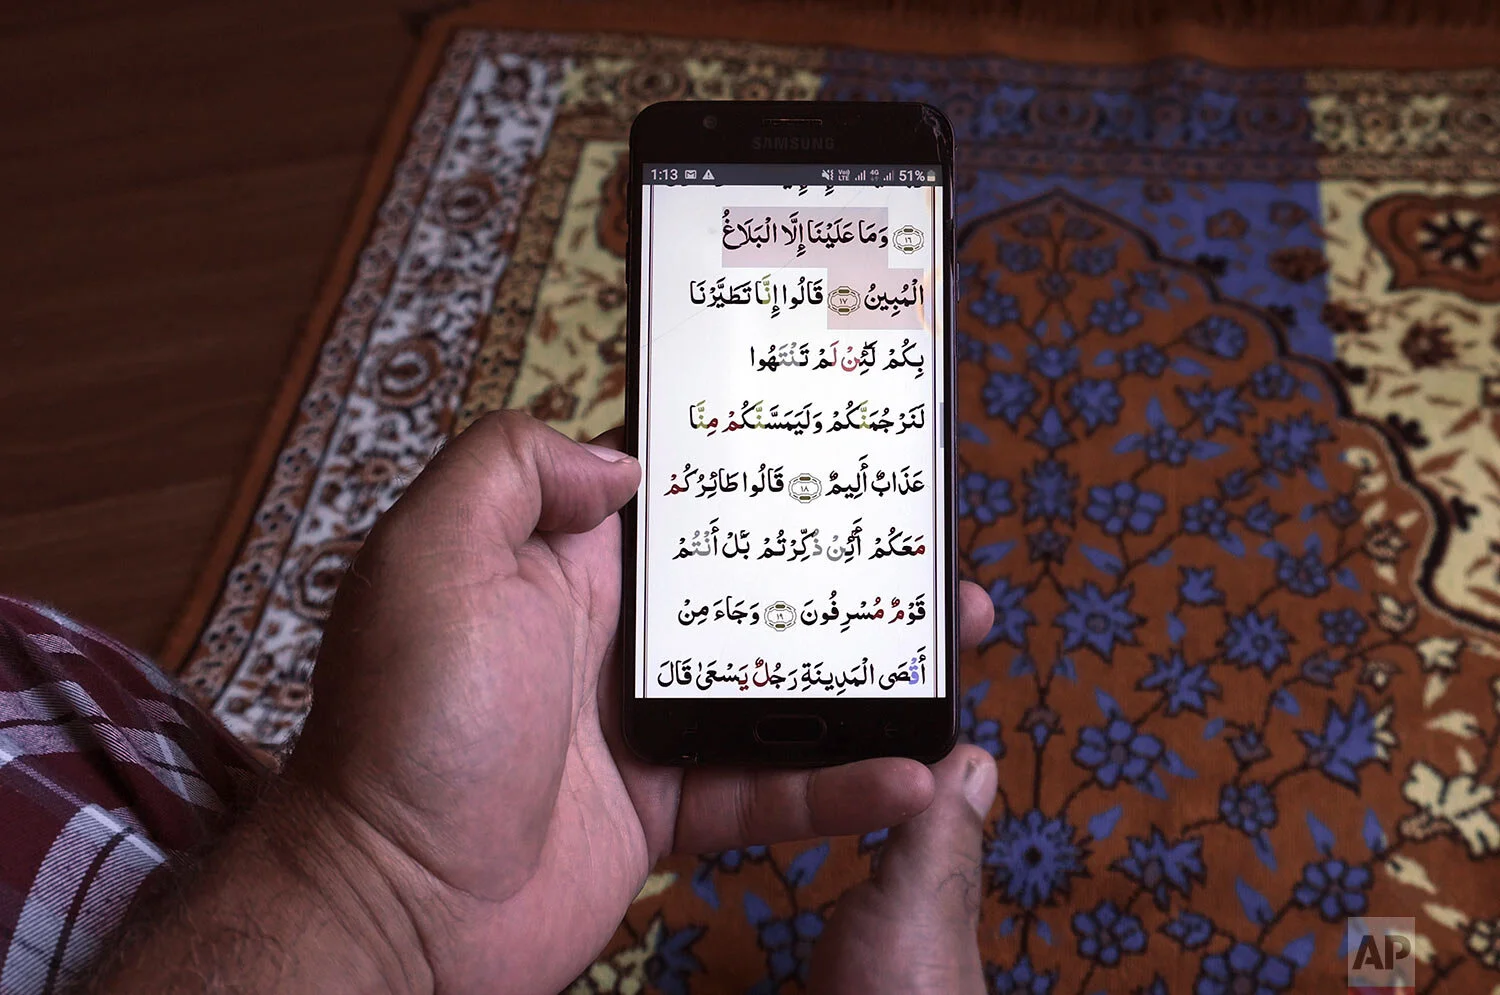 SAMSUNG
1:13 51%
﴿١٦﴾ وَمَا عَلَيْنَا إِلَّا الْبَلَاغُ
الْمُبِينُ ﴿١٧﴾ قَالُوا إِنَّا تَطَيَّرْنَا
بِكُمْ لَئِنْ لَمْ تَنْتَهُوا
لَنَرْجُمَنَّكُمْ وَلَيَمَسَّنَّكُمْ مِنَّا
عَذَابٌ أَلِيمٌ ﴿١٨﴾ قَالُوا طَائِرُكُمْ
مَعَكُمْ أَئِنْ ذُكِّرْتُمْ بَلْ أَنْتُمْ
قَوْمٌ مُسْرِفُونَ ﴿١٩﴾ وَجَاءَ مِنْ
أَقْصَى الْمَدِينَةِ رَجُلٌ يَسْعَىٰ قَالَ
AP